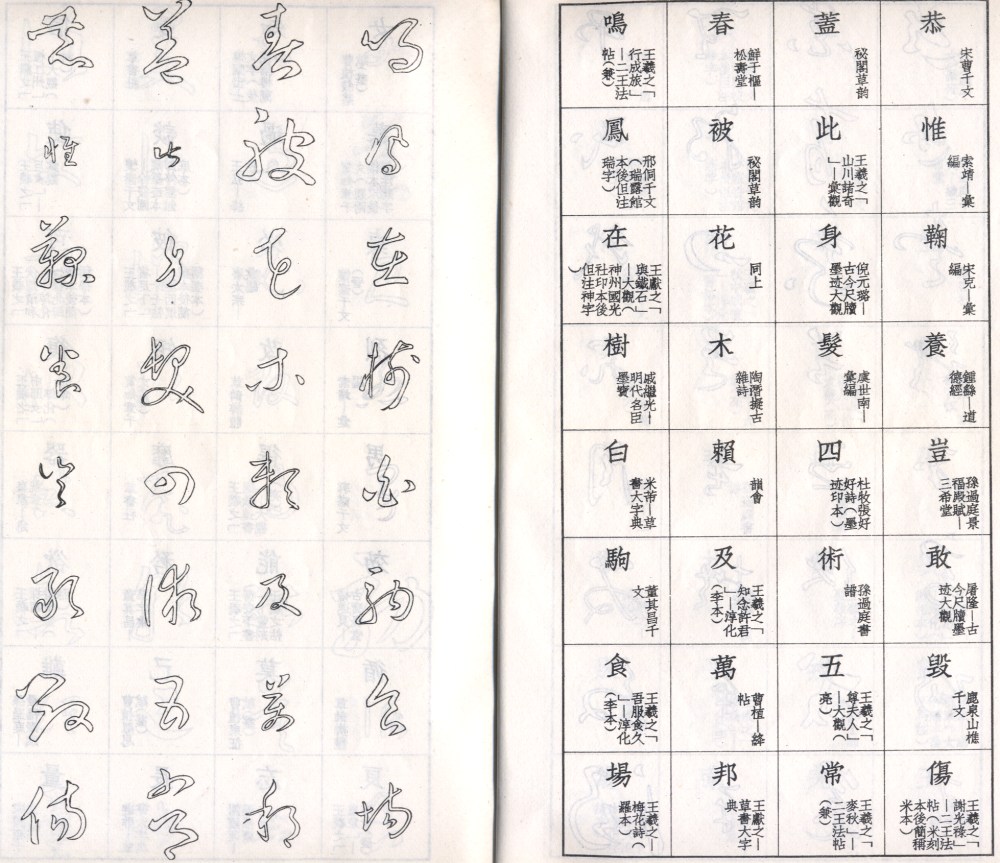 鳴鳳在樹白駒食場
春被花木賴及萬邦
蓋此身髮四術五常
恭惟鞠養豈敢毀傷
鳴
王羲之「
行成旅」
—二王法
帖(兼)
鳳
邢侗千文
(瑞露館
本後但注
瑞字)
在
王獻之「
與鐵石」
—大觀(
神州國光
社印本後
但注神字
)
樹
戚繼光—
明代名臣
墨寶
白
米芾—草
書大字典
駒
董其昌千
文
食
王羲之「
吾服食久
」—淳化
(李本)
場
王羲之—
梅花詩(
羅本)
春
鮮于樞—
松壽堂
被
秘閣草韵
花
同上
木
陶潛擬古
雜詩
賴
韻會
及
王羲之「
知念許君
」—淳化
(李本)
萬
曹植—絳
帖
邦
王獻之—
草書大字
典
蓋
秘閣草韵
此
王羲之「
山川諸奇
」—彙觀
身
倪元璐—
古今尺牘
墨迹大觀
髮
虞世南—
彙編
四
杜牧張好
好詩(墨
迹印本)
術
孫過庭書
譜
五
王羲之「
尊夫人」
—大觀(
亮)
常
王羲之「
麥秋」—
二王法帖
(兼)
恭
宋曹千文
惟
索靖—彙
編
鞠
宋克—彙
編
養
鍾繇—道
德經
豈
孫過庭景
福殿賦—
三希堂
敢
屠隆—古
今尺牘墨
迹大觀
毀
鹿泉山樵
千文
傷
王羲之「
謝光祿」
—二王法
帖(米刻
本後簡稱
米本)